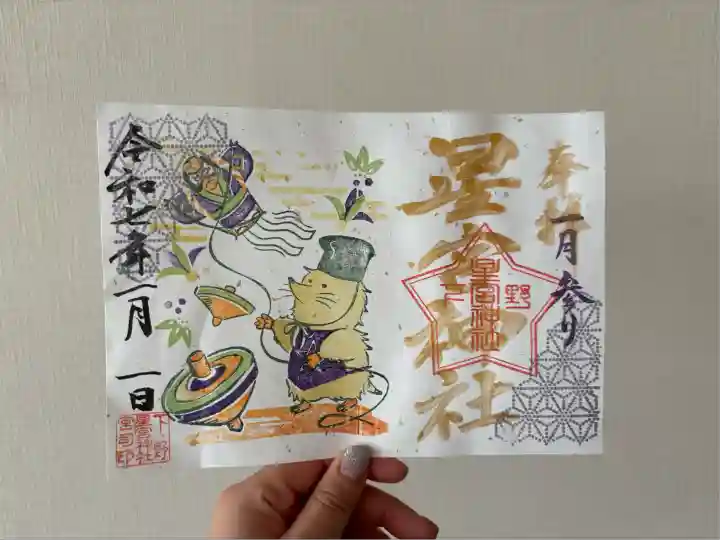 奉拝
一月参り
星宮神社
下野
星宮神社
令和七年一月一日
下野
星宮神社
宮司印